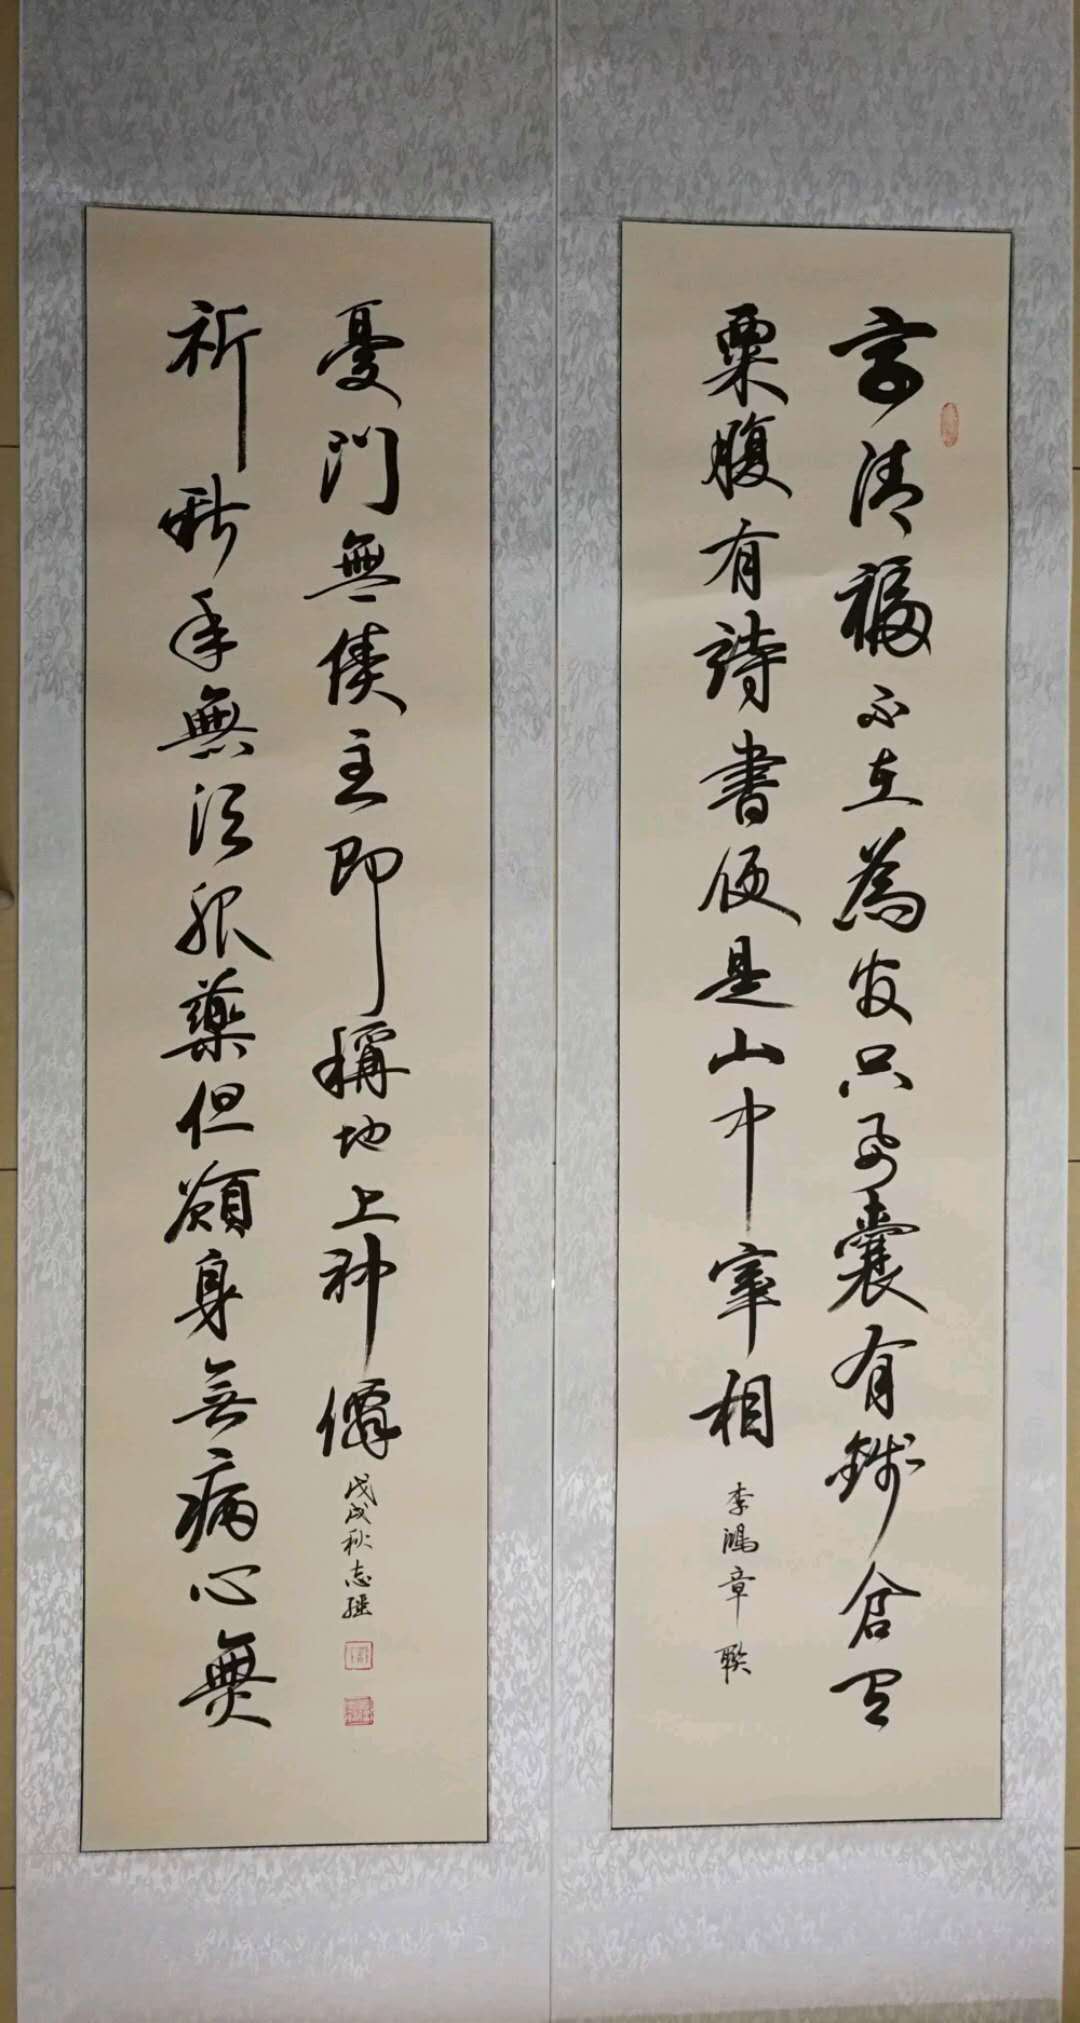 享清福不在為官只要囊有錢倉有
粟腹有詩書便是山中宰相
李鴻章聯
祈壽年無須服藥但願身無病心無
憂門無債主即稱地上神僊
戊戌秋志